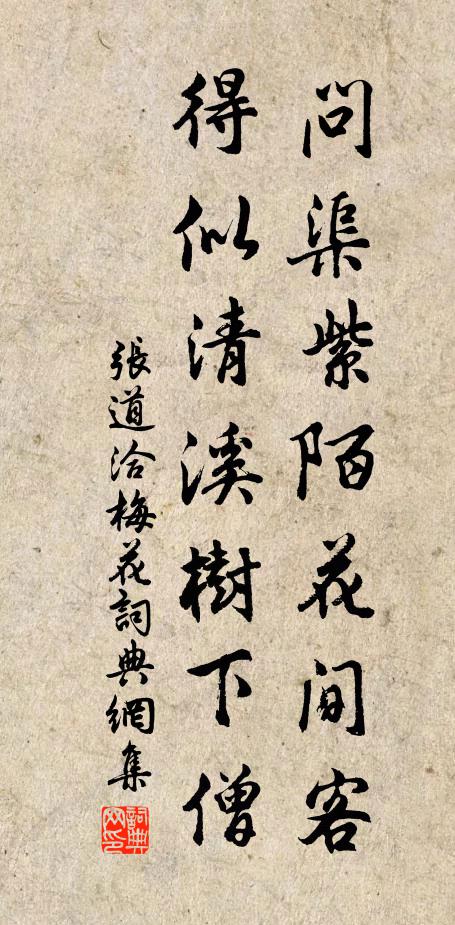 問渠紫陌花間客
得似清溪樹下僧
張道洽梅花詞典網集
詞典网印